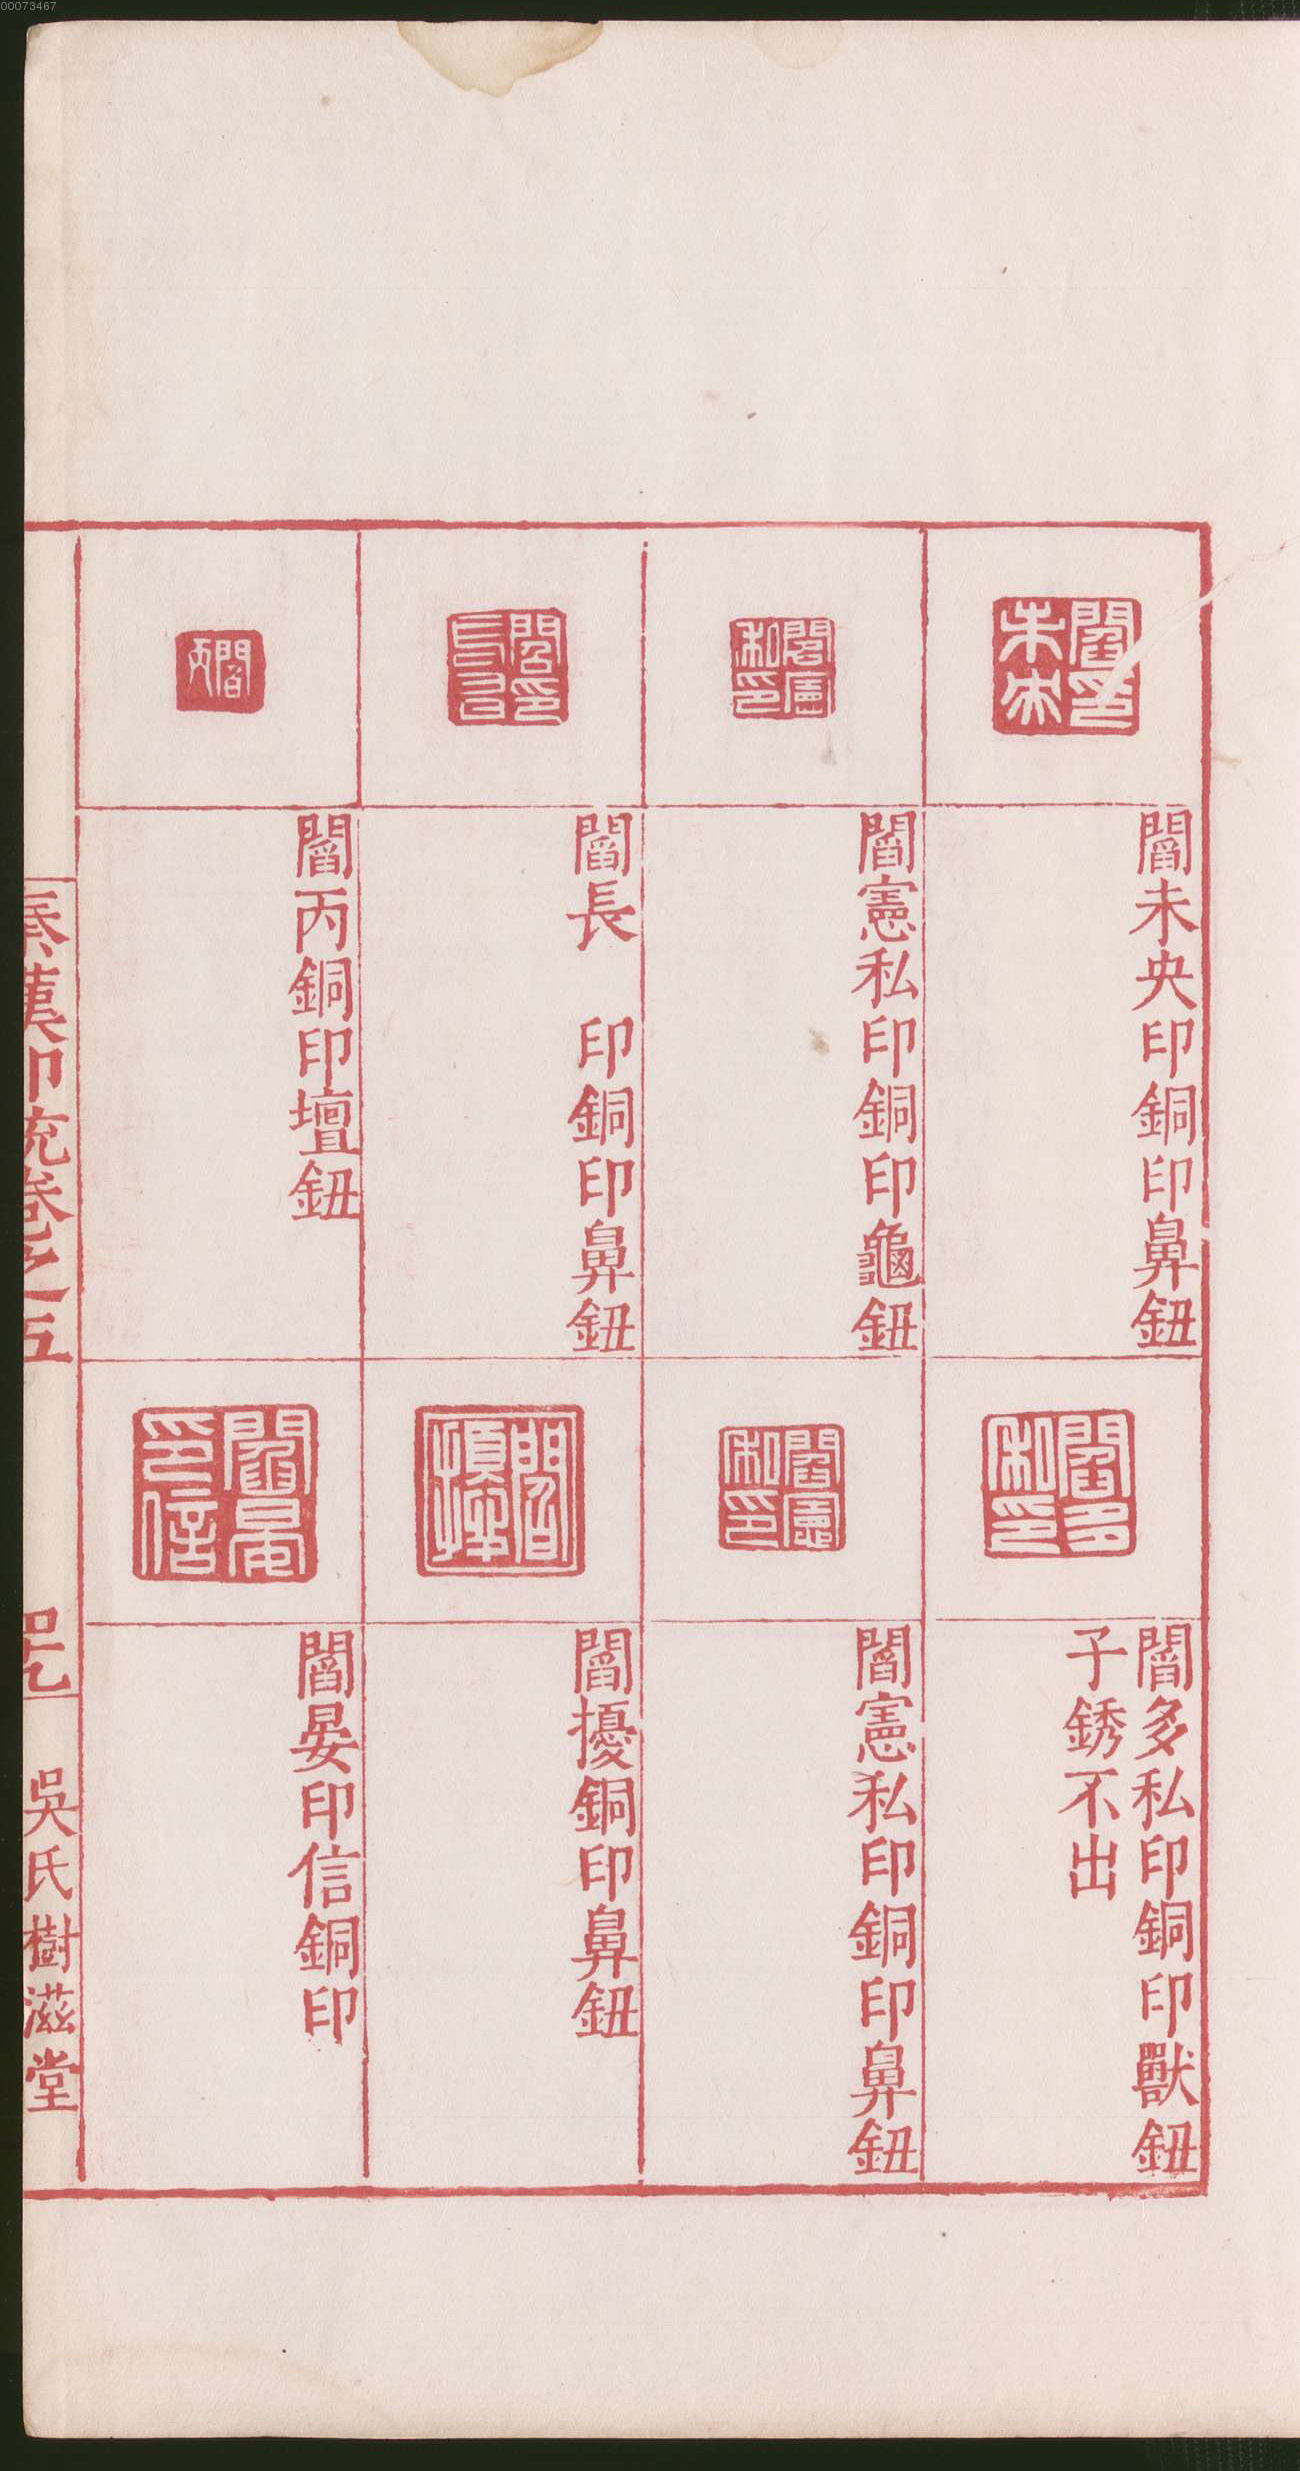 00073467
閻未央印銅印鼻鈕
閻憲私印銅印龜鈕
閻長　印銅印鼻鈕
閻丙銅印壇鈕
閻多私印銅印獸鈕
子銹不出
閻憲私印銅印鼻鈕
閻擾銅印鼻鈕
閻晏印信銅印
秦漢印統卷之五
吳氏樹滋堂